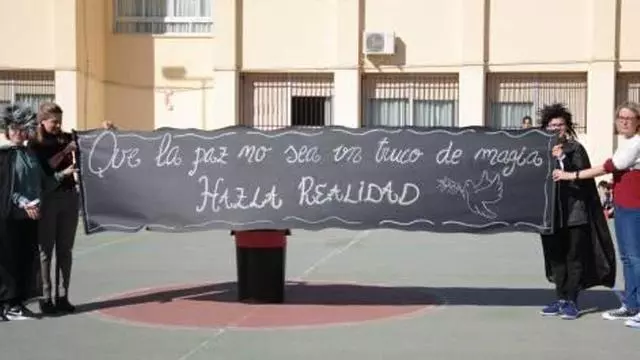 Que la paz no sea un truco de magia
HAZLA REALIDAD